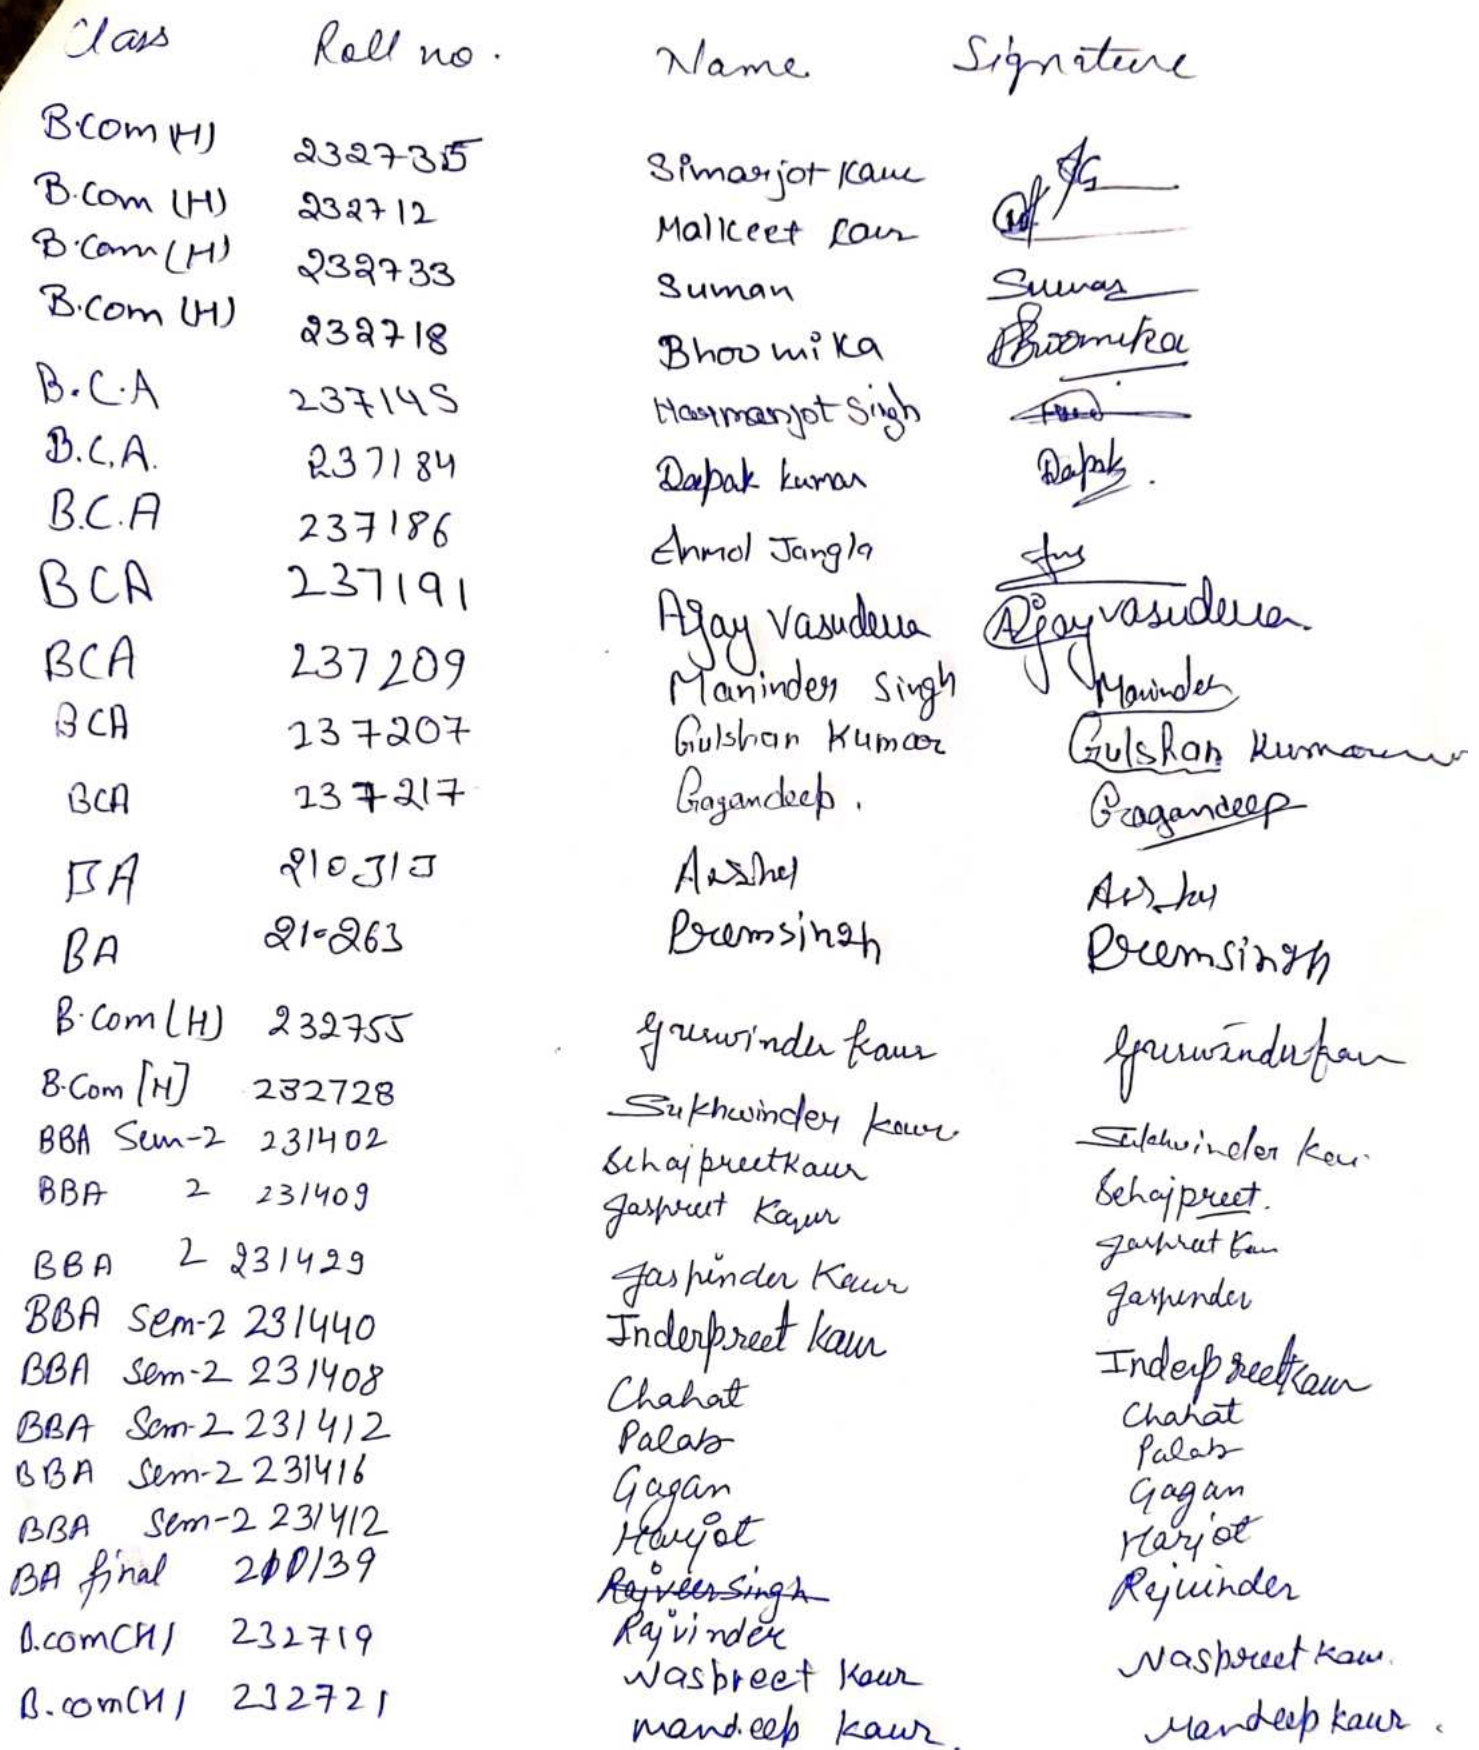 Class Roll no. Name Signature
B.com (H) 2327315 Simarjot Kaur
B.Com (H) 232712 Malkeet Kaur
B.Com (H) 232733 Suman Suman
B.Com (H) 232718 Bhoomika Bhoomika
B.C.A 237145 Harmanjot Singh
B.C.A. 237184 Deepak kumar Deepak.
B.C.A 237186 Anmol Jangla
BCA 237191 Ajay Vasudeva Ajay vasudeva.
BCA 237209 Maninder Singh Maninder
BCA 237207 Gulshan Kumar Gulshan Kumar
BCA 237217 Gagandeep. Gagandeep
BA 210313
BA 210263 Premsingh Premsingh
B.Com (H) 232755 Gurwinder Kaur Gurwinder Kaur
B.Com [H] 232728 Sukhwinder Kaur Sukhwinder Kaur
BBA Sem-2 231402 Sehajpreet Kaur Sehajpreet.
BBA 2 231409 Jaspreet Kaur Jaspreet Kaur
BBA 2 231429 Jaspinder Kaur Jaspinder
BBA Sem-2 231440 Inderpreet Kaur Inderpreet Kaur
BBA Sem-2 231408 Chahat Chahat
BBA Sem-2 231412 Palak Palak
BBA Sem-2 231416 Gagan Gagan
BBA Sem-2 231412 Harjot Harjot
BA final 210139 Rajveer Singh Rajwinder
Rajvinder
B.com(H) 232719 Naspreet Kaur Naspreet Kaur.
B.com(H) 232721 mandeep Kaur. Mandeep Kaur.